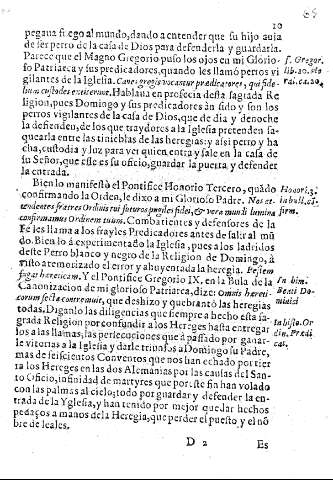 10
pegaua fuego al mundo, dando a entender que su hijo auia
de ser perro de la casa de Dios para defenderla y guardarla.
Parece que el Magno Gregorio puso los ojos en mi Glorio
so Patriarca y sus predicadores, quando les llamó perros vi
gilantes de la Iglesia. Canes gregis vocantur prædicatores, qui fide-
lium custodes existerunt. Hablaua en profecia desta sagrada Re
ligion, pues Domingo y sus predicadores àn sido y son los
perros vigilantes de la casa de Dios, que de dia y denoche
la defienden, de los que traydores a la Iglesia pretenden sa-
quearla entre las tinieblas de las heregias: y assi perro y ha
cha, custodia y luz para ver quien entra y sale en la casa de
su Señor, que este es su oficio, guardar la puerta, y defender
la entrada.
Bien lo manifestò el Pontifice Honorio Tercero, quãdo
confirmando la Orden, le dixo a mi Glorioso Padre. Nos at-
tendentes fratres Ordinis tui futuros pugiles fidei, & vera mundi lumina
confirmamus Ordinem tuum. Combatientes y defensores de la
Fe les llama a los frayles Predicadores antes de salir al mũ
do. Bien lo à experimentado la Iglesia, pues a los ladridos
deste Perro blanco y negro de la Religion de Domingo, à
visto atemorizado el error y ahuyentada la heregia. Pestem
fugat hæreticam. Y el Pontifice Gregorio IX. en la Bula de la
Canonizacion de mi glorioso Patriarca, dize: Omnis hæreti-
corum secta contremuit, que deshizo y quebrantò las heregias
todas. Diganlo las diligencias que siempre a hecho esta sa-
grada Religion por confundir a los Hereges hasta entregar
los a las llamas; las persecuciones que à passado por ganar-
le vitorias a la Iglesia y darle triunfos a Domingo su Padre,
mas de seiscientos Conventos que nos han echado por tier
ra los Hereges en las dos Alemanias por las causas del San
to Oficio, infinidad de martyres que por este fin han volado
con las palmas al cielo; todo por guardar y defender la en-
trada de la Yglesia, y han tenido por mejor quedar hechos
pedaços a manos de la Heregia, que perder el puesto y el nõ
bre de leales.
D 2 Es
S. Gregor.
lib. 20. Mo
ral. ca. 20.
Honori. 3.
in bull. cõ
firm.
En him.
Beati Do-
minici
In histo. Or
din. Prædi
cat.